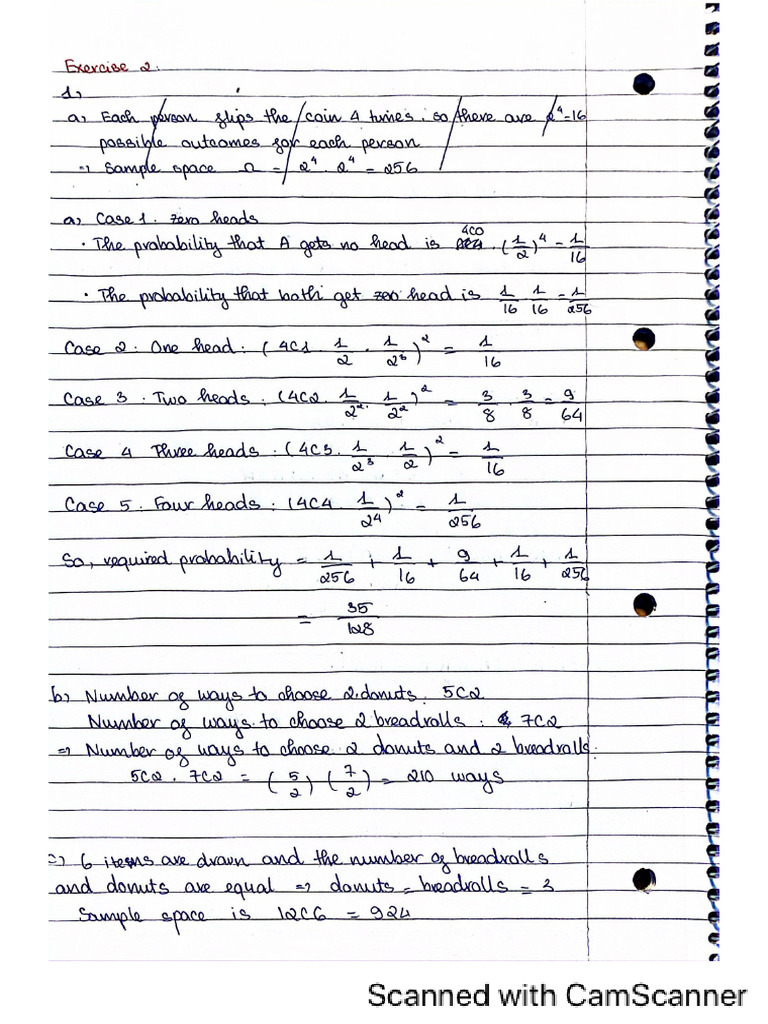 Exercise 2:
1,
a, Each person flips the coin 4 times, so there are 2⁴=16
possible outcomes for each person
=> Sample space Ω = 2⁴ . 2⁴ = 256
a, Case 1. Zero heads
4C0
• The probability that A gets no head is . (1/2)⁴ = 1/16
• The probability that both get zero head is 1/16 . 1/16 = 1/256
Case 2: One head: (4C1 . 1/2 . 1/2³)² = 1/16
Case 3: Two heads: (4C2. 1/2² . 1/2²)² = 3/8 . 3/8 = 9/64
Case 4 Three heads: (4C3. 1/2³ . 1/2)² = 1/16
Case 5. Four heads: (4C4. 1/2⁴)² = 1/256
So, required probability = 1/256 + 1/16 + 9/64 + 1/16 + 1/256
= 35/128
b, Number of ways to choose 2 donuts: 5C2
Number of ways to choose 2 breadrolls: 7C2
=> Number of ways to choose 2 donuts and 2 breadrolls:
5C2 . 7C2 = (5 2) (7 2) = 210 ways
c, 6 items are drawn and the number of breadrolls
and donuts are equal => donuts = breadrolls = 3
Sample space is 12C6 = 924
Scanned with CamScanner